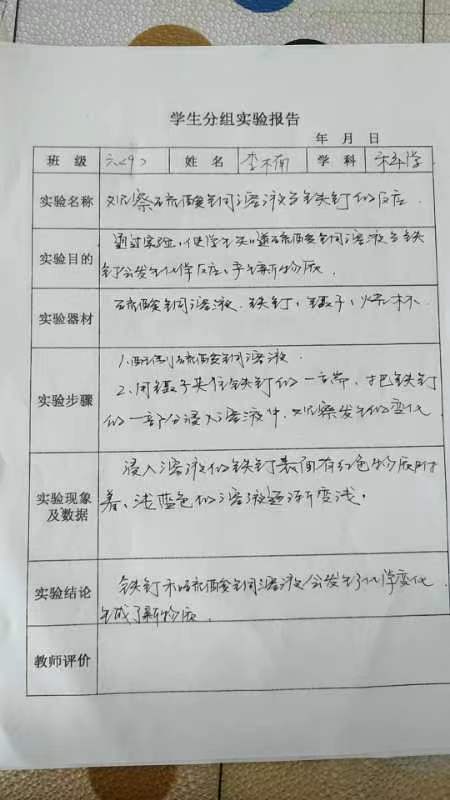 学生分组实验报告
年 月 日
班 级 六(9) 姓 名 李木 学 科 科学
实验名称 观察硫酸铜溶液与铁钉的反应.
实验目的 通过实验,使学生知道硫酸铜溶液与铁
钉会发生化学反应、产生新物质.
实验器材 硫酸铜溶液、铁钉、镊子、烧杯.
实验步骤 1.配制硫酸铜溶液.
2.用镊子夹住铁钉的一端,把铁钉
的一部分浸入溶液中,观察发生的变化
实验现象
及数据
浸入溶液的铁钉表面有红色物质附
着、浅蓝色的溶液逐渐变浅.
实验结论 铁钉和硫酸铜溶液会发生了化学变化
生成了新物质.
教师评价